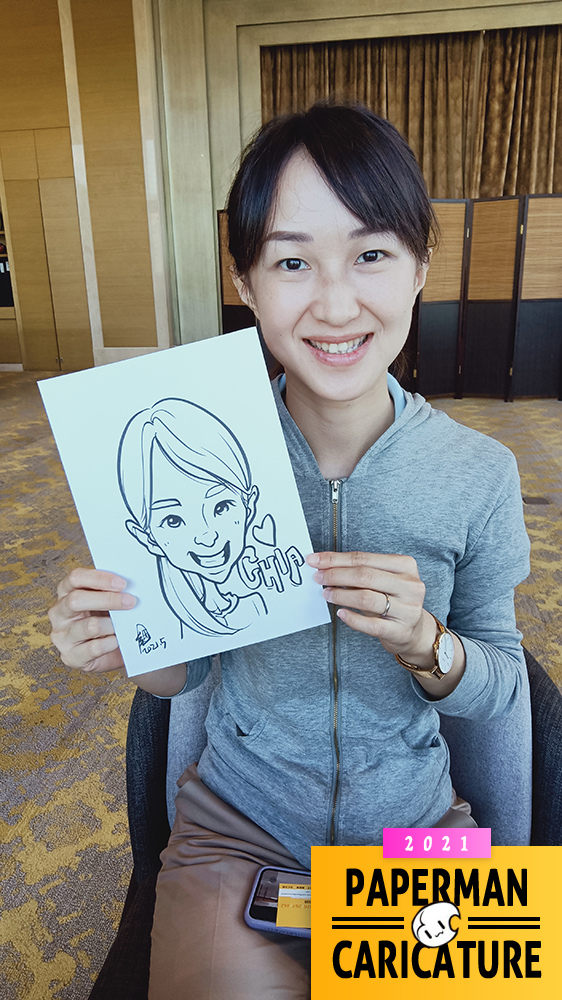 CHIA
2021.5
2021
PAPERMAN
CARICATURE